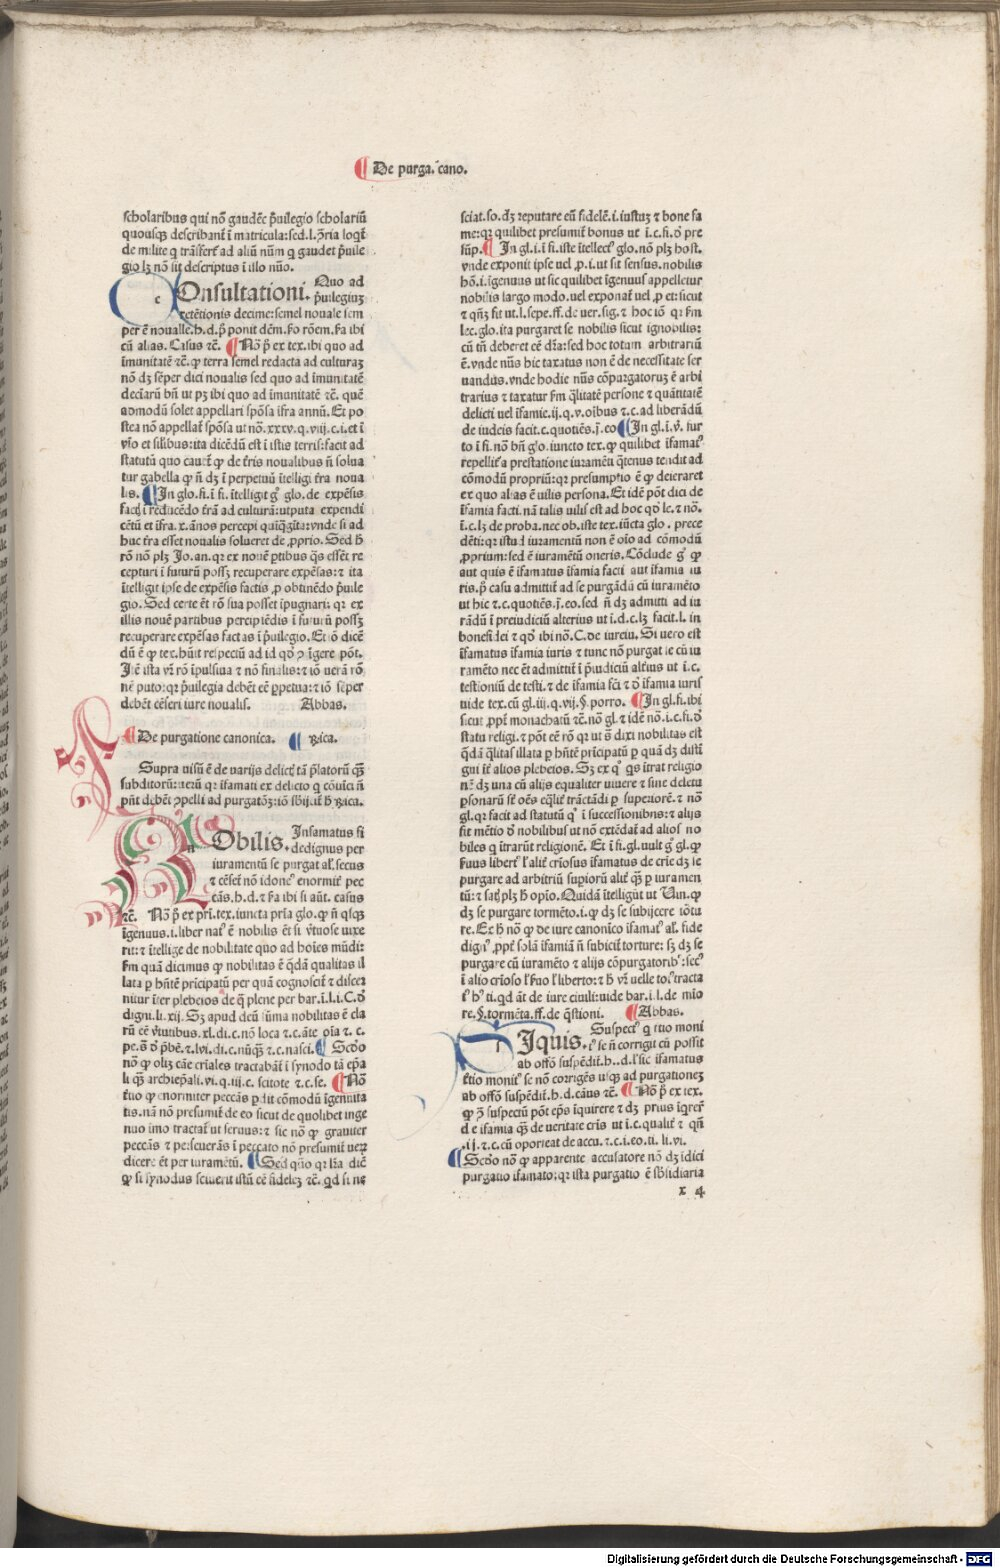 De purga. cano.
scholaribus qui nõ gaudẽt p̃uilegio scholariũ
quousqꝫ describant̃ ĩ matricula: sed. l. ꝯ̃ria loqt̃
de milite q trãsfert̃ ad aliũ nũm q gaudet p̃uile
gio lꝫ nõ sit descriptus ĩ illo nũo.
Onsultationi. Quo ad
p̃uilegiuꝫ
retẽtionis decime: semel nouale sem
per ẽ nouale. h. d. p̃ ponit
cũ alias. Casus ⁊c̃. ¶ Nõ p̃ ex tex. ibi quo ad
ĩmunitatẽ ⁊c̃. ꝙ terra semel redacta ad culturaꝫ
nõ dꝫ sẽper dici noualis sed quo ad ĩmunitatẽ
decĩarũ bñ ut pꝫ ibi quo ad ĩmunitatẽ ⁊c̃. quẽ
admodũ solet appellari spõsa ĩfra annũ. Et po
stea nõ appellat̃ spõsa ut nõ. xxxv. q. viij. c. i. et ĩ
ita dicẽdũ est ĩ istis terris: facit ad
statutũ quo cauet̃ ꝙ de t̃ris noualibus ñ solua
tur gabella ꝙ ñ dꝫ ĩ perpetuũ ĩtelligi t̃ra noua
lis. ¶ In glo. fi. ĩ fi. ĩtelligit gͦ glo. de expẽsis
fact̃ ĩ reducẽdo t̃rã ad culturã: utputa expendi
cẽtũ et ĩfra. x. ãnos percepi quĩqgĩta: vnde si ad
huc t̃ra esset noualis solueret de ꝓprio. Sed h̃
rõ nõ plꝫ Jo. an. qꝛ ex nouẽ ꝑtibus qͣs essẽt re
cepturi ĩ futurũ possꝫ recuperare expẽsas: ⁊ ita
ĩtelligit ipse de expẽsis factis ꝓ obtinẽdo p̃uile
gio. Sed certe ẽt rõ sua posset ĩpugnari: qꝛ ex
illis nouẽ partibus percipiẽdis ĩ futurũ possꝫ
recuperare expẽsas factas ĩ p̃uilegio. Et iõ dicẽ
dũ ẽ ꝙ tex. hũit respectũ ad id qͦ ꝯtĩgere põt.
ista vr̃ rõ ĩpulsiua ⁊ nõ finalis: ⁊ iõ uerã rõ
nẽ puto: qꝛ p̃uilegia debẽt eẽ ꝑpetua: ⁊ iõ sẽper
debẽt cẽseri iure noualis. Abbas.
¶ De purgatione canonica. ¶ Rica.
Supra uisũ ẽ de varijs delict̃ tã p̃latorũ qͣꝫ
subditorũ: uerũ qꝛ ĩfamati ex delicto q cõuĩci ñ
pñt debẽt ꝯpelli ad purgatõꝫ: iõ sb̃ijcit̃ h̃ Rica.
Obilis. Infamatus si
dedignus per
iuramentũ se purgat al̃. secus
⁊ cẽset̃ nõ idoneꝰ enormit̃ pec
cãs. h. d. ⁊ ibi si aũt. casus
⁊c̃. Nõ p̃ ex pri. tex. iuncta pria glo. ꝙ ñ qͥsqꝫ
ĩgenuus. i. liber natꝰ ẽ nobilis ẽt si ṽtuose uixe
rit: ⁊ ĩtellige de nobilitate quo ad hoies mũdi:
ẜm quã dicimus ꝙ nobilitas ẽ qͣdã qualitas il
lata ꝑ hñtẽ pricipatũ per quã cognoscit̃ ⁊ discer
nitur ĩter plebeios de q̃ plene per bar. ĩ. l. i. C. đ
digni. li. xij. Sꝫ apud deũ sũma nobilitas ẽ cla
rũ eẽ ṽtutibus. xl. di. c. nõ loca ⁊ c. ãte oĩa ⁊ c.
⁊. lvi. di. c. nũqͣꝫ ⁊ c. nasci. ¶ Scđo
nõ ꝙ oliꝫ cãe crĩales tractabãt̃ ĩ synodo tã ep̃a
li qͣꝫ archiepãli. vi. q. iij. c. scitote ⁊ c. se. ¶ Nõ
t̃tio ꝙ enormiter peccãs ꝑdit cõmodũ ĩgenuita
tis. nã nõ presumit̃ de eo sicut de quolibet inge
nuo imo tractat̃ ut seruus: ⁊ sic nõ ꝙ grauiter
peccãs ⁊ perseuerãs ĩ peccato nõ presumit̃ ueꝝ
dicere ẽt per iuramẽtũ. ¶ Sed qͥno qꝛ lr̃a dic̃
ꝙ si synodus sciuerit istũ eẽ ĩfidelẽ ⁊c̃. qd si ne
sciat. so. dꝫ reputare eũ fidelẽ. i. iustuꝫ ⁊ bone fa
me: qꝛ quilibet presumit̃ bonus ut ĩ. c. fi. đ pre
sũp. ¶ In gl. i. ĩ fi. iste ĩtellectꝰ glo. nõ plꝫ host.
vnde exponit ipse uel .p. i. ut sit sensus. nobilis
hõ. i. ĩgenuus ut sic quilibet ĩgenuus appelletur
nobilis largo modo. uel exponat̃ uel .p et: sicut
⁊ qñꝫ fit ut. l. sepe. ff. de ver. sig. ⁊ hoc iõ qꝛ ẜm
lec. glo. ita purgaret se nobilis sicut ignobilis:
cũ tñ deberet eẽ dr̃a: sed hoc totum arbitrariũ
ẽ. vnde nũs hic taxatus non ẽ de necessitate ser
uandus. vnde hodie nũs cõpurgatoruꝫ ẽ arbi
trarius ⁊ taxatur ẜm qͣlitatẽ persone ⁊ quãtitatẽ
delicti uel ĩfamie. ij. q. v. oĩbus ⁊ c. ad liberãdũ
de iudeis facit. c. quotiẽs. j̃. eo ¶ In gl. i. ṽ. fur
to ĩ fi. nõ bñ glo. iuncto tex. ꝙ quilibet ĩfamatꝰ
repellit̃ a prestatione iuramẽti qͣtenus tendit ad
cõmodũ propriũ: qꝛ presumptio ẽ ꝙ deieraret
ex quo alias ẽ uilis persona. Et idẽ põt dici de
ĩfamia facti. nã talis uilis est ad hoc qđ le. ⁊ nõ.
ĩ. c. lꝫ de proba. nec ob. iste tex. iũcta glo. prece
dẽti: qꝛ istud iuramentũ non ẽ oĩo ad cõmodũ
ꝓprium: sed ẽ iuramẽtũ oneris. Cõclude gͦ ꝙ
aut quis ẽ ĩfamatus ĩfamia facti aut ĩfamia iu
ris. p̃ casu admittit̃ ad se purgãdũ cũ iuramẽto
ut hic ⁊ c. quotiẽs. j̃. eo. sed ñ dꝫ admitti ad iu
rãdũ ĩ preiudiciũ alterius ut ĩ. d. c. lꝫ facit. l. in
bonefidei ⁊ qđ ibi nõ. C. de iureiu. Si uero est
ĩfamatus ĩfamia iuris ⁊ tunc nõ purgat se cũ iu
ramẽto nec ẽt admittit̃ ĩ p̃iudiciũ alt̃ius ut ĩ. c.
testioniũ de testi. ⁊ de ĩfamia fcĩ ⁊ đ ĩfamia iuris
uide tex. cũ gl. iij. q. vij. §. porro. ¶ In gl. fi. ibi
sicut ꝓpt̃ monachatũ ⁊c̃. nõ gl. ⁊ idẽ nõ. ĩ. c. fi. đ
statu religi. ⁊ põt eẽ rõ qꝛ ut s̃ dixi nobilitas est
qͣdã qͣlitas illata ꝑ hñtẽ prĩcipatũ ꝑ quã dꝫ distĩ
gui ĩt̃ alios plebeios. Sꝫ ex qͦ qͥs ĩtrat religio
nẽ dꝫ una cũ alijs equaliter uiuere ⁊ sine delectu
ꝑsonarũ sũt oẽs eqͣlit̃ trãctãdi ꝑ superiorẽ. ⁊ nõ
gl. qꝛ facit ad statutũ qͦ ĩ successionibus: ⁊ alijs
fit mẽtio đ nobilibus ut nõ extẽdat̃ ad alios no
biles q ĩtrarũt religionẽ. Et ĩ fi. gl. uult gͦ gl. ꝙ
ẜuus libert̃ꝰ l̃ alit̃ crĩosus ĩfamatus de crĩe dꝫ se
purgare ad arbitriũ supiorũ alit̃ qͣꝫ ꝑ iuramen
tũ: ⁊ satꝫ plꝫ h̃ opĩo. Quidã ĩtelligũt ut Uin. ꝙ
dꝫ se purgare tormẽto. i. ꝙ dꝫ se subijcere tõtu
re. Ex h̃ nõ ꝙ de iure canonico ĩfamatꝰ al̃. fide
dignꝰ ꝓpt̃ solã ĩfamiã ñ subicit̃ torture: sꝫ dꝫ se
purgare cũ iuramẽto ⁊ alijs cõpurgatoribꝰ: secꝰ
ĩ alio crĩoso l̃ ẜuo l̃ liberto: ⁊ h̃ vr̃ uelle totꝰ tracta
tꝰ hꝰ ti. qd ãt de iure ciuili: uide bar. ĩ. l. de mĩo
re. §. tormẽta. ff. de q̃stioni. ¶ Abbas.
Iquis. Suspectꝰ q tuo moni
tꝰ se ñ corrigit cũ possit
ab offõ suspẽdit̃. h. d. l̃ sic ĩfamatus
t̃tio monitꝰ se nõ corrigẽs usqꝫ ad purgationeꝫ
ab offõ suspẽdit̃. h. d. cãus ⁊c̃. ¶ Nõ p̃ ex tex.
ꝙ ꝯ̃ suspectũ põt ep̃s ĩquirere ⁊ dꝫ prius ĩqrer̃
de ĩfamia qͣꝫ de veritate crĩs ut ĩ. c. qualit̃ ⁊ qñ
.ij. ⁊ c. cũ oporteat de accu. ⁊ c. i. eo. ti. li. vi.
¶ Scđo nõ ꝙ apparente accusatore nõ dꝫ ĩdici
purgatio ĩfamato: qꝛ ista purgatio ẽ sb̃sidiaria
x 4
Digitalisierung gefördert durch die Deutsche Forschungsgemeinschaft - DFG